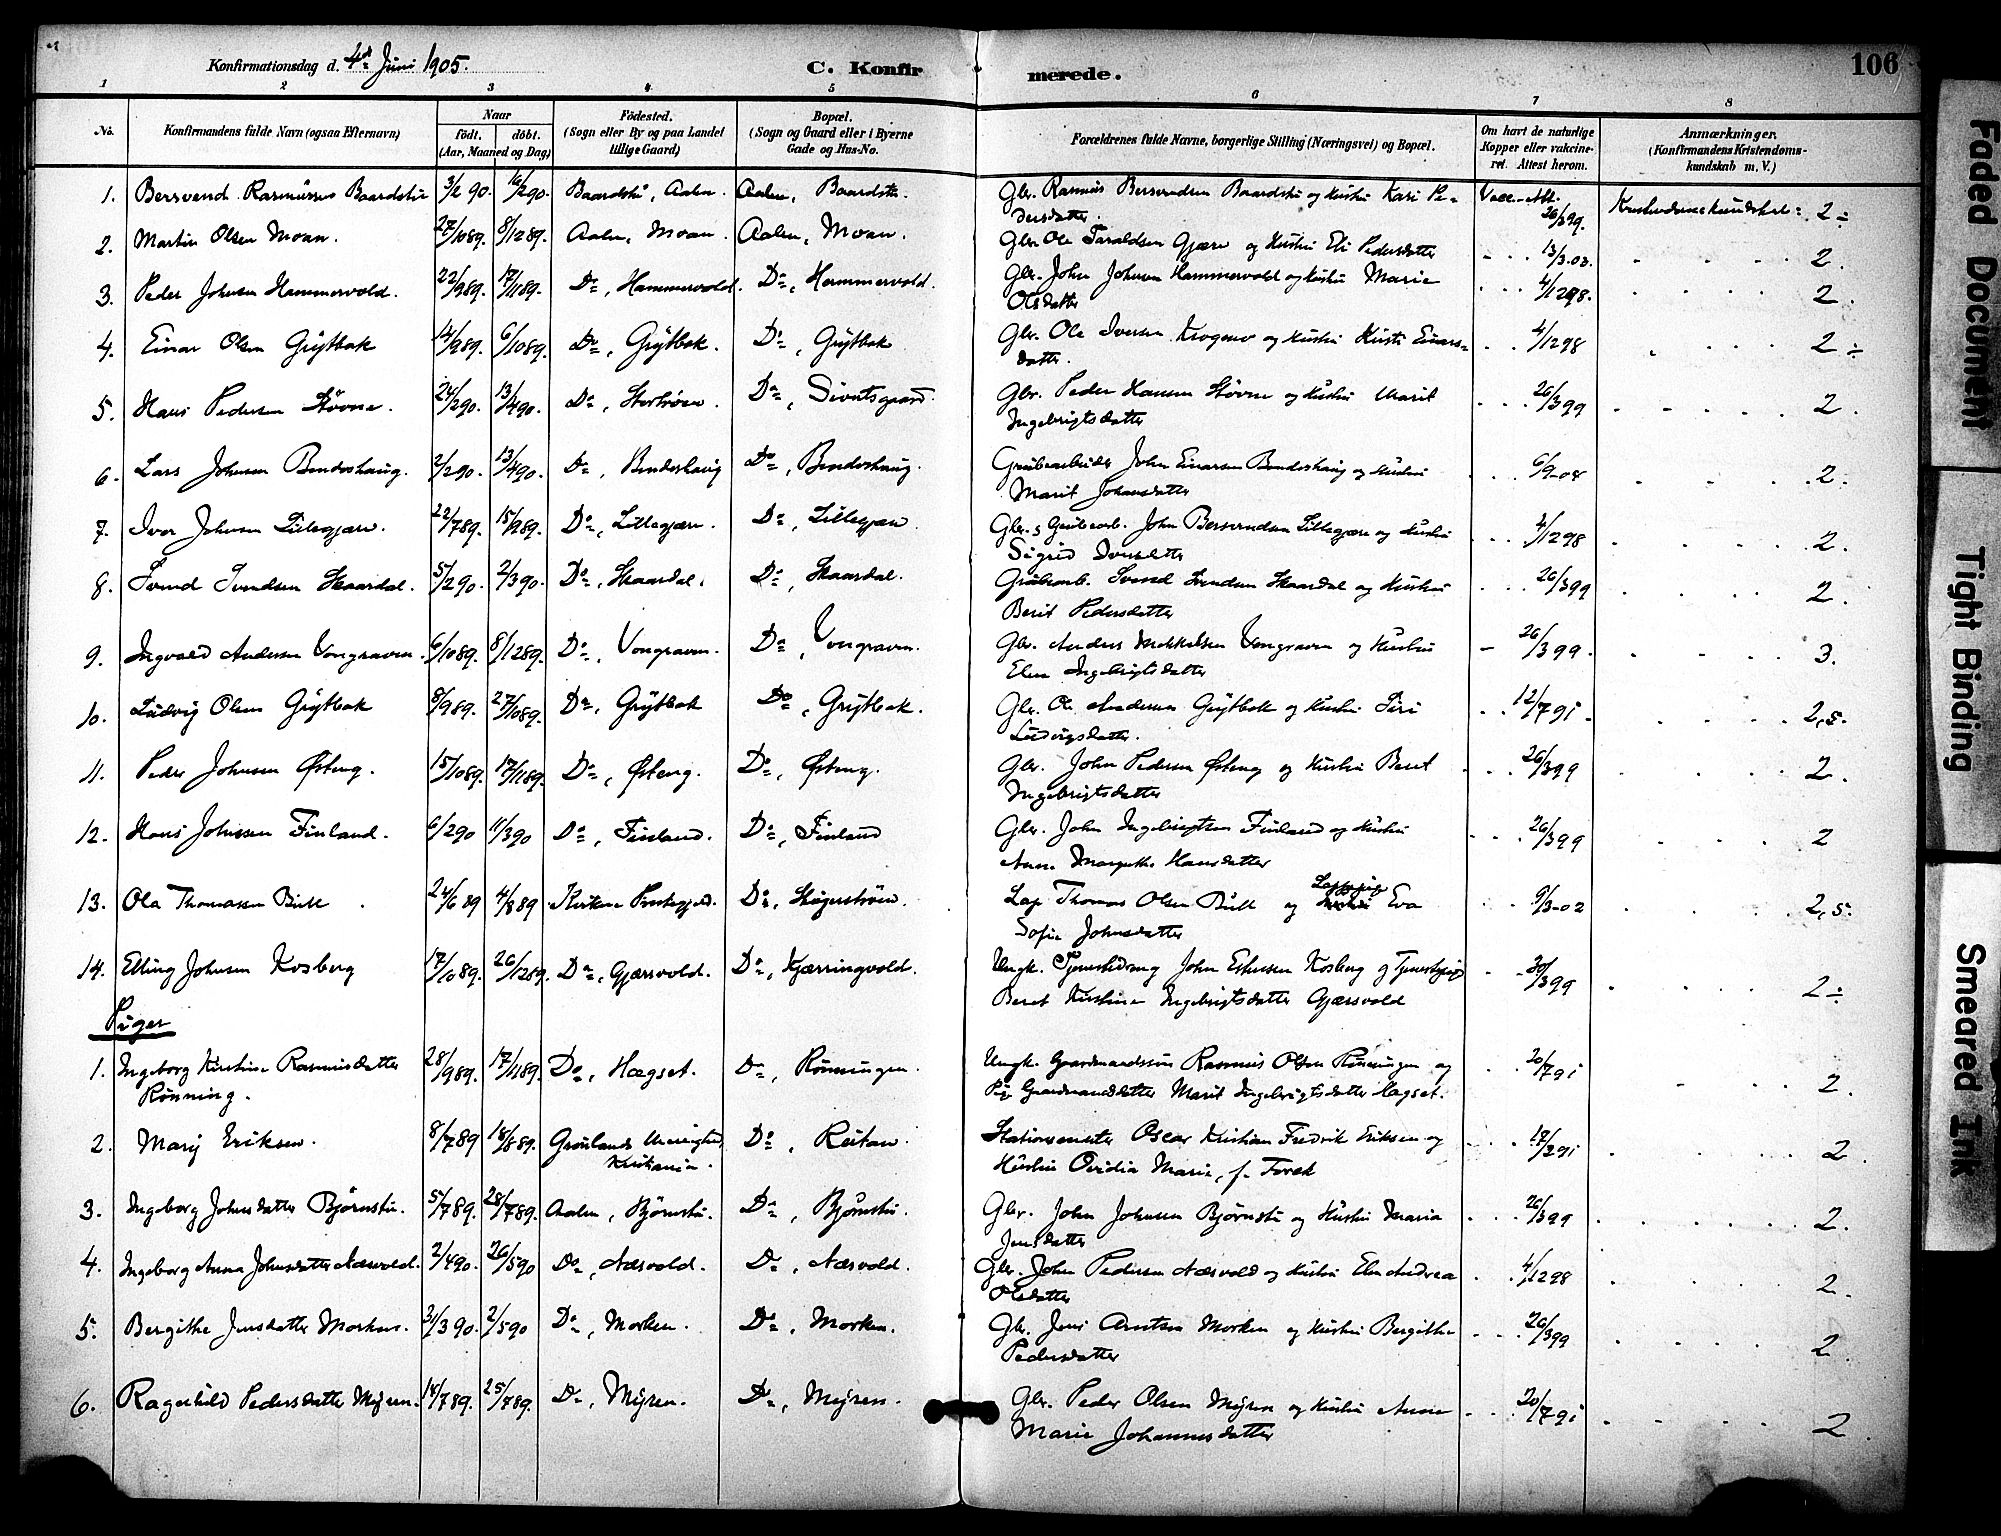 Konfirmationsdag d. 4de Juni 1905.
C. Konfirmerede.
106
1 2 3 4 5 6 7 8
No. Konfirmandens fulde Navn (ogsaa Efternavn)
Naar
født. døbt.
(Aar, Maaned og Dag)
Fødested.
(Sogn eller By og paa Landet
tillige Gaard)
Bopæl.
(Sogn og Gaard eller i Byerne
Gade og Hus-No.
Forældrenes fulde Navne, borgerlige Stilling (Næringsvei) og Bopæl.
Om havt de naturlige
Kopper eller vakcine-
ret. Attest herom.
Anmærkninger.
(Konfirmandens Kristendoms-
kundskab m. V.)
1. Bersvend Rasmussen Baardstu 3/2 90. 16/2 90. Baardstu, Aalen Aalen, Baardstu. Gbr. Rasmus Bersvendsen Baardstu og Hustru Kari Pe- Vacc.-Att. 26/3 99. Kristendomskundskab: 2÷
dersdatter.
2. Martin Olsen Moan. 27/10 89. 8/12 89. Aalen, Moan. Aalen, Moan. Gbr. Ole Taraldsen Gjære og Hustru Eli Pedersdatter 13/3-03. 2.
3. Peder Johnsen Hammervold. 22/9 89. 17/11 89. Do, Hammervold. Do, Hammervold. Gbr. John Johnsen Hammervold og Hustru Marie 4/12 98. 2.
Olsdatter
4. Einar Olsen Grytbak 14/9 89. 6/10 89. Do, Grytbak. Do, Grytbak Gbr. Ole Iversen Krogeno og Hustru Kirsti Einars- 4/12 98 2÷
datter.
5. Hans Pedersen Støvne. 24/2 90. 13/4 90. Do, Stortrøen. Do, Sivertsgaard. Gbr. Peder Hansen Støvne og Hustru Marit 26/3 99 2.
Ingebrigtsdatter
6. Lars Johnsen Bendoshaug. 2/2 90. 13/4 90. Do, Bendoshaug Do, Bendoshaug. Grubearbeider John Einarsen Bendoshaug og Hustru 6/9-04 2.
Marit Johansdatter
7. Iver Johnsen Lillegjære. 22/7 89. 15/9 89. Do, Lillegjære. Do, Lillegjære. Gbr. & Grubearb. John Bersvendsen Lillegjære og Hustru 4/12 98 2.
Sigrid Iversdatter
8. Svend Svendsen Skaardal. 5/2 90. 2/3 90. Do, Skaardal. Do, Skaardal. Grubearb. Svend Svendsen Skaardal og Hustru 26/3 99 2.
Berit Pedersdatter
9. Ingvald Andersen Vongraven. 6/10 89. 8/12 89. Do, Vongraven. Do, Vongraven. Gbr. Anders Mikkelsen Vongraven og Hustru 26/3 99. 3.
Elen Ingebrigtsdatter
10. Ludvig Olsen Grytbak 8/9 89. 27/10 89. Do, Grytbak Do, Grytbak. Gbr. Ole Andersen Grytbak og Hustru Siri 12/7 91. 2,5.
Ludvigsdatter.
11. Peder Johnsen Østeng. 15/10 89. 17/11 89. Do, Østeng. Do, Østeng. Gbr. John Pedersen Østeng og Hustru Beret 26/3 99 2.
Ingebrigtsdatter
12. Hans Johnsen Finland. 6/2 90 11/3 90 Do, Finland. Do, Finland Gbr. John Ingebrigtsen Finland og Hustru 26/3 99 2
Anne Margrethe Hansdatter
13. Ola Thomassen Bull 24/6 89 4/8 89. Do, Lap Thomas Olsen Bull og Eva 9/3-02 2,5.
Sofie Johnsdatter
14. Elling Johnsen Kosberg 17/10 89. 26/12 89. Do, Gjærsvold. Do, Kjærringvold. Ungk. Tjenestedreng John Estensen Kosberg og 30/3 99 2÷
Beret Kirstine Ingebrigtsdatter Gjærsvold
Piger
1. Ingeborg Kirstine Rasmusdatter 28/9 89. 17/11 89. Do, Hægset. Do, Rønningen. Ungk. Gaardmandssøn Rasmus Olsen Rønningen og 20/7 91 2.
Rønning. Pige Gaardmandsdatter Marit Ingebrigtsdatter Hægset.
2. Mary Eriksen. 8/7 89 18/8 89. Grønlands Menighed, Do, Reitan. Stationsmester Oscar Kristian Fredrik Eriksen og 17/2 91 2
Kristiania. Hustru Ovidia Marie, f. Forek
3. Ingeborg Johnsdatter Bjørnstu. 5/7 89. 28/7 89. Aalen, Bjørnstu. Do, Bjørnstu. Gbr. John Johnsen Bjørnstu og Hustru Maria 26/3 99 2.
Jensdatter
4. Ingeborg Anna Johnsdatter Næsvold. 2/4 90. 26/5 90 Do, Næsvold. Do, Næsvold. Gbr. John Pedersen Næsvold og Hustru Elen Andrea 4/12 98 2.
Olsdatter
5. Bergithe Jensdatter Morken. 31/3 90. 2/5 90 Do, Morken. Do, Morken. Gbr. Jens Arntsen Morken og Hustru Bergithe 26/3 99 2.
Pedersdatter
6. Ragnhild Pedersdatter Myren. 14/7 89. 25/7 89. Do, Myren. Do, Myren. Gbr. Peder Olsen Myren og Hustru Anne 20/7 91 2.
Marie Johannesdatter
Faded Document
Tight Binding
Smeared Ink